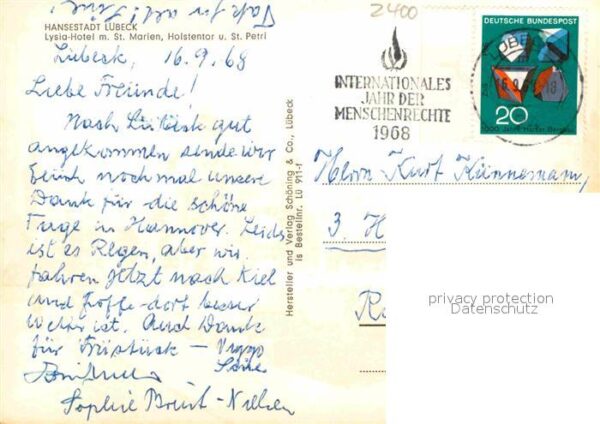 Tak for alt!
HANSESTADT LÜBECK
Lysia-Hotel m. St. Marien, Holstentor u. St. Petri
Lübeck, 16.9.68
Liebe Freunde!
Nach Lübeck gut
angekommen sende wir
Euch noch mal unsere
Dank für die schöne
Tage in Hannover. Leider
ist es Regen, aber wir
fahren jetzt nach Kiel
und hoffe dort besser
Wetter ist. Auch Dank
für Früstück — Viggo
Sophie Brust-Nielsen
Hersteller und Verlag Schöning & Co., Lübeck
is Bestellnr. Lü 911-f
2400
INTERNATIONALES
JAHR DER
MENSCHENRECHTE
1968
DEUTSCHE BUNDESPOST
20
1000 Jahre Harzer Bergbau
Herrn Kurt Künnemann,
3. H
privacy protection
Datenschutz